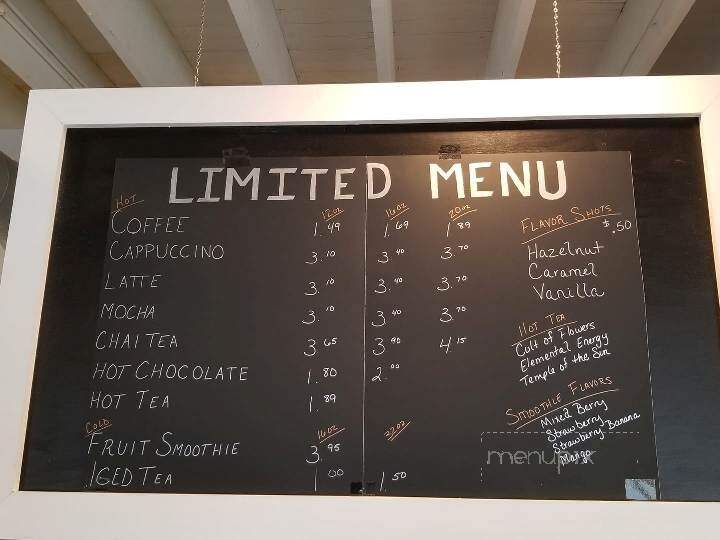 LIMITED MENU
HOT 12oz 16oz 20oz
COFFEE 1.49 1.69 1.89
CAPPUCCINO 3.10 3.40 3.70
LATTE 3.10 3.40 3.70
MOCHA 3.10 3.40 3.70
CHAI TEA 3.65 3.90 4.15
HOT CHOCOLATE 1.80 2.00
HOT TEA 1.89
COLD 16oz 22oz
FRUIT SMOOTHIE 3.95
ICED TEA 1.00 1.50
FLAVOR SHOTS $.50
Hazelnut
Caramel
Vanilla
HOT TEA
Cult of Flowers
Elemental Energy
Temple of the Sun
SMOOTHIE FLAVORS
Mixed Berry
Strawberry
Strawberry Banana
Mango
menupix